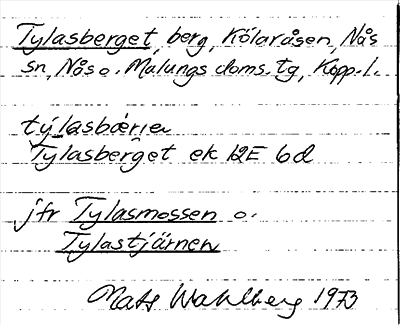 Tylasberget, berg, Kölaråsen, Nås
sn, Nås o. Malungs doms. tg, Kopp. l.
týlasbær̀ɪeʌ
Tylasberget ek 12E 6d
jfr Tylasmossen o.
Tylastjärnen
Mats Wahlberg 1973